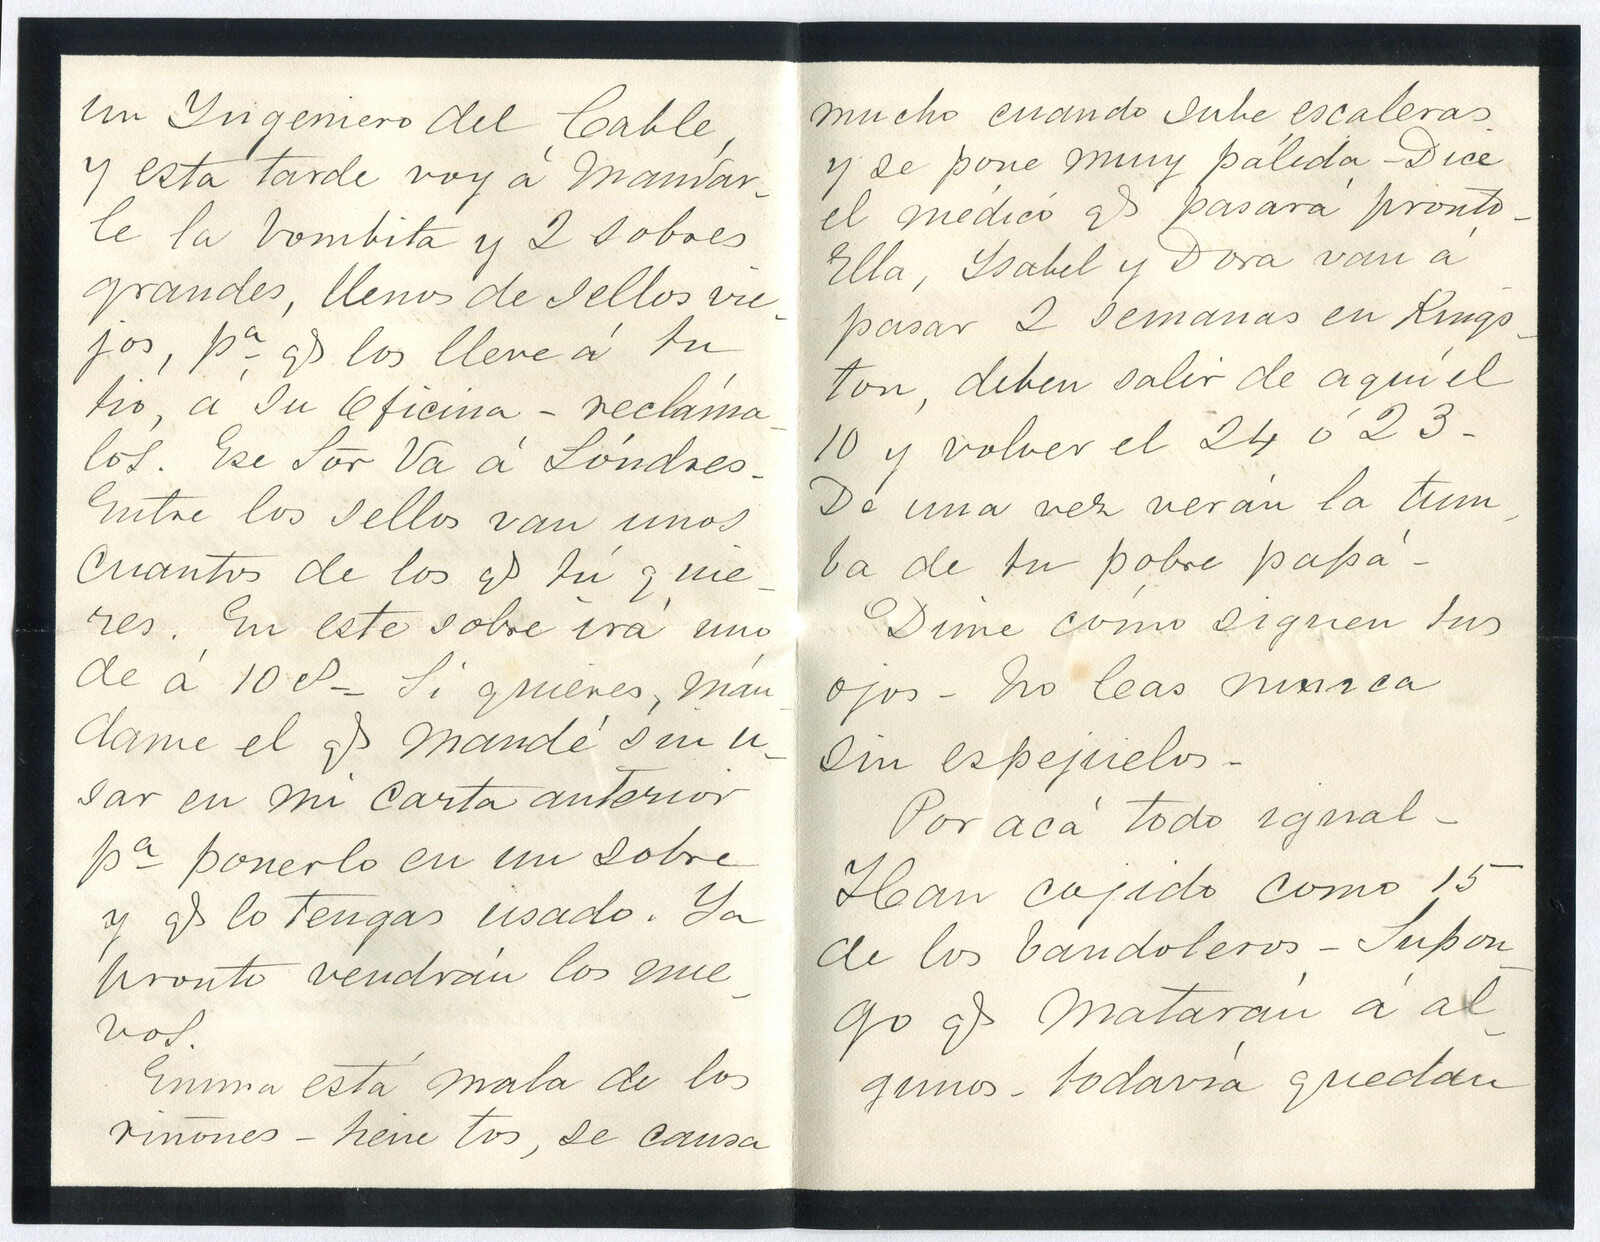 un Yngeniero del Cable,
y esta tarde voy á mandar-
le la bombita y 2 sobres
grandes, llenos de sellos vie-
jos, pª qe los lleve á tu
tio, á su Oficina - recláma-
los. Ese Sor Va á Lóndres-
Entre los sellos van unos
cuantos de los qe tú quie-
res. En este sobre irá uno
de á 10 c- Si quieres, mán-
dame el qe mandé sin u-
sar en mi carta anterior
pª ponerlo en un sobre
y qe lo tengas usado. Ya
pronto vendrán los nue-
vos.
Emma está mala de los
riñones - tiene tos, se causa
mucho cuando sube escaleras
y se pone muy pálida - Dice
el médico qe pasará pronto-
Ella, Ysabel y Dora van á
pasar 2 semanas en Kings-
ton, deben salir de aquí el
10 y volver el 24 ó 23-
De una vez verán la tum-
ba de tu pobre papá-
Dime cómo siguen tus
ojos - No leas nunca
sin espejuelos-
Por acá todo igual-
Han cojido como 15
de los bandoleros - Supon-
go qe matarán á al-
gunos - todavía quedan